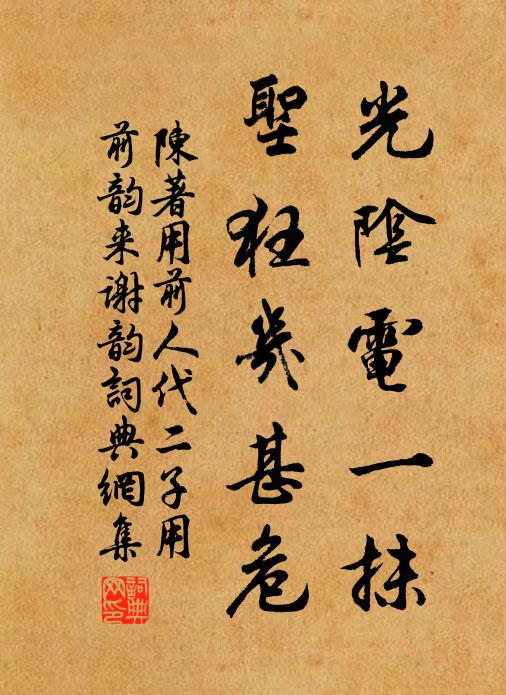 光陰電一抹
聖狂幾甚危
陳著用前人代二子用
前韵来謝韵詞典網集
詞典網印